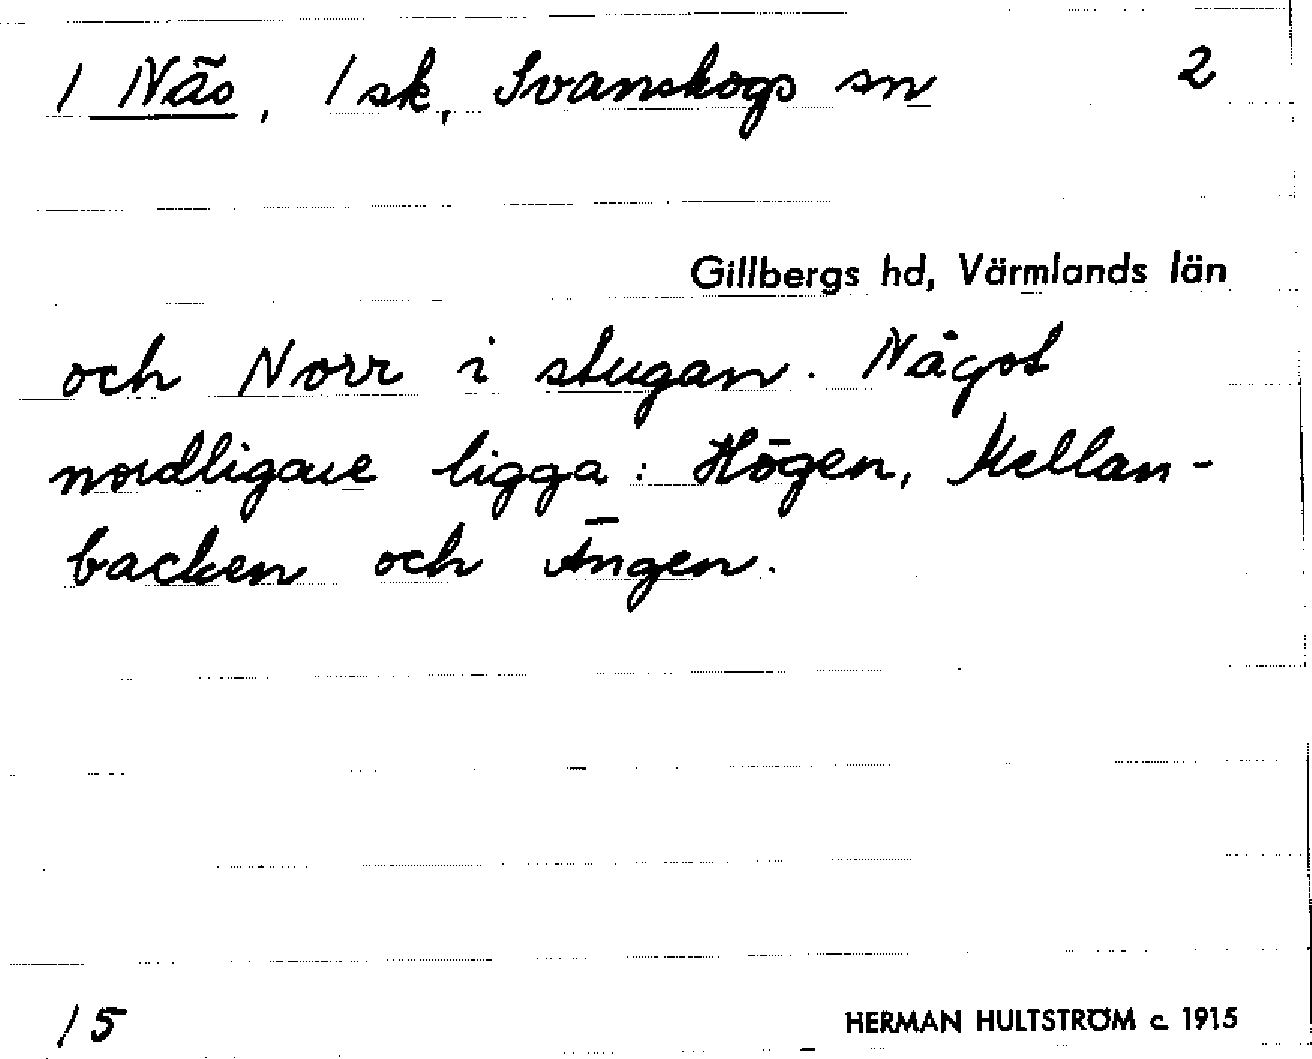 1 Näs, 1 sk, Svanskogs sn 2
Gillbergs hd, Värmlands län
och Norr i stugan. Något
nordligare ligga: Högen, Mellan-
backen och Ängen.
15 HERMAN HULTSTRÖM c. 1915